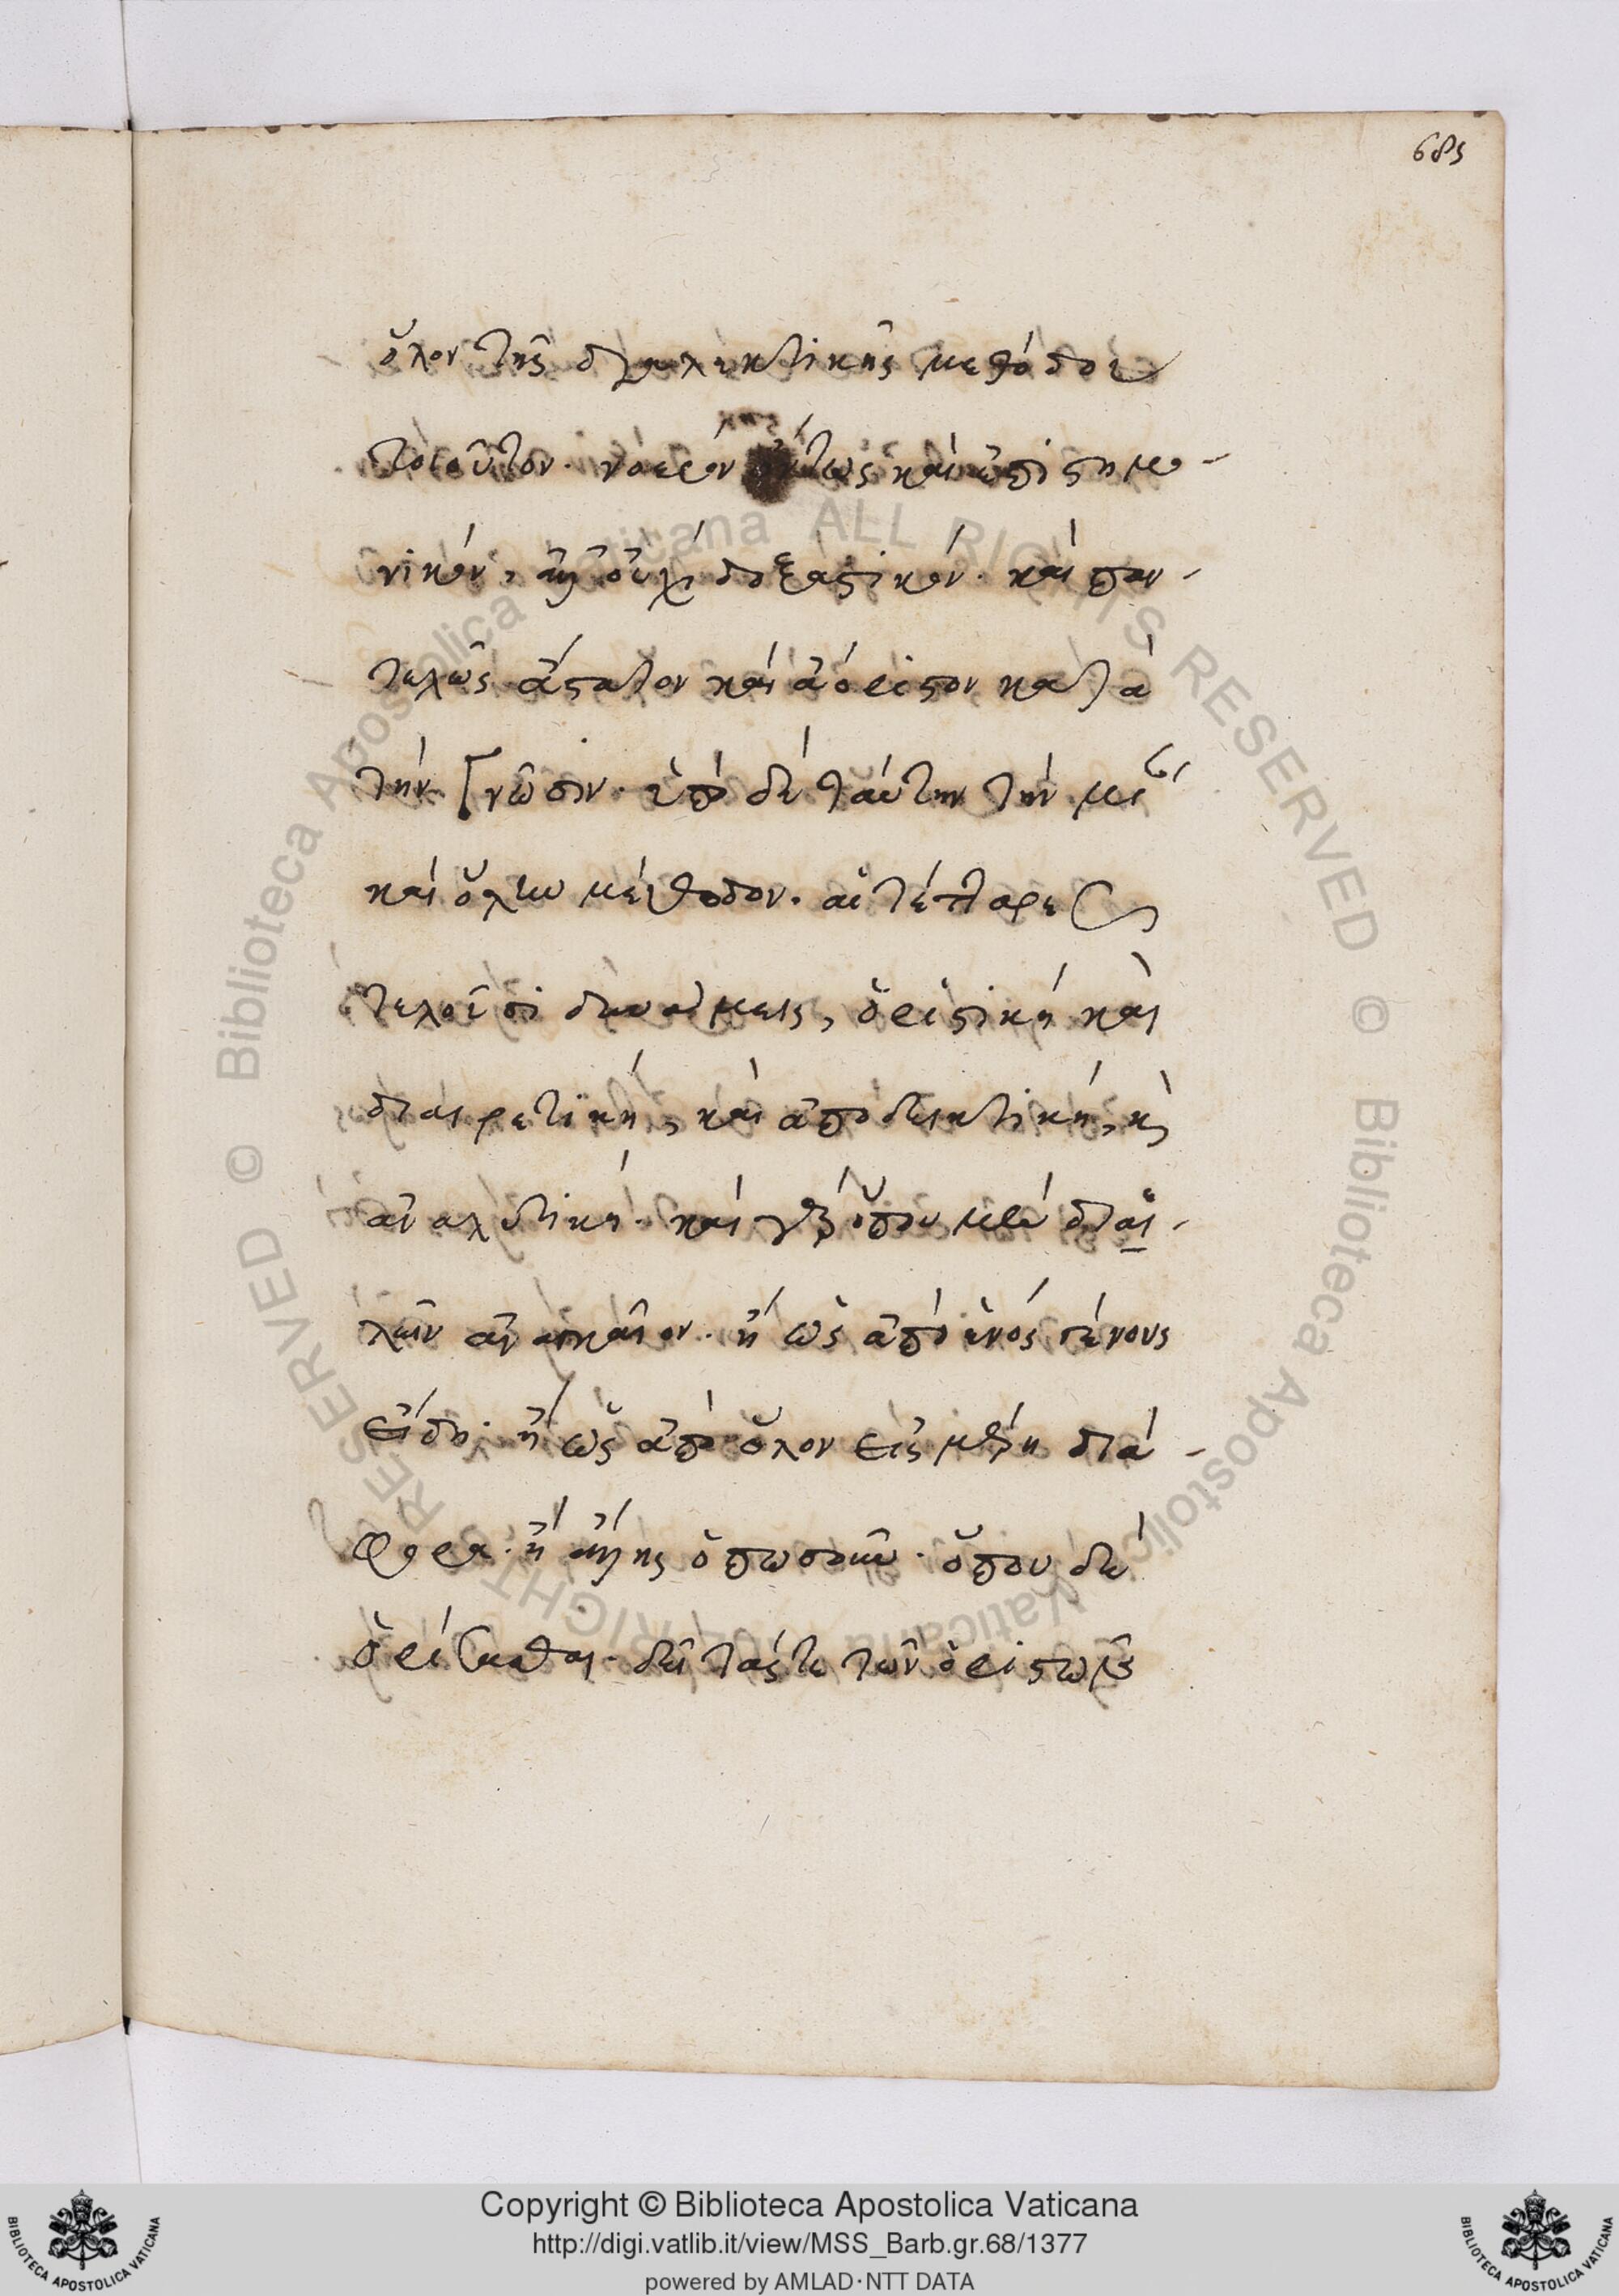 685
ὅλον τῆς διαλεκτικῆς μεθόδου
τοιοῦτον. νοερὸν ὄντως καὶ ἐπιστημο-
νικόν, ἀλλ' οὐχὶ δοξαστικόν. καὶ παν-
τελῶς ἄστατον καὶ ἀόριστον κατὰ
τὴν γνῶσιν. ὑπὸ δὲ ταύτην τὴν
καὶ ὅλην μέθοδον. αἱ τέτταρες
τελοῦσι δυνάμεις, ὁριστικὴ καὶ
διαιρετική, καὶ ἀποδεικτική, καὶ
ἀναλυτική. καὶ γὰρ ὅπου μὲν διαι-
ρεῖν ἀναγκαῖον. ἢ ὡς ἀπὸ ἑνὸς γένους
εἴδη. ἢ ὡς ἀπὸ ὅλον εἰς μέρη διά-
φορα. ἢ ἄλλης ὁπωσοῦν. ὅπου δὲ
ὁρίζεσθαι. δεῖ τάς τε τῶν ὁριστῶν
Copyright © Biblioteca Apostolica Vaticana
http://digi.vatlib.it/view/MSS_Barb.gr.68/1377
powered by AMLAD·NTT DATA
BIBLIOTECA APOSTOLICA VATICANA
BIBLIOTECA APOSTOLICA VATICANA
© Biblioteca Apostolica Vaticana ALL RIGHTS RESERVED
© Biblioteca Apostolica Vaticana ALL RIGHTS RESERVED